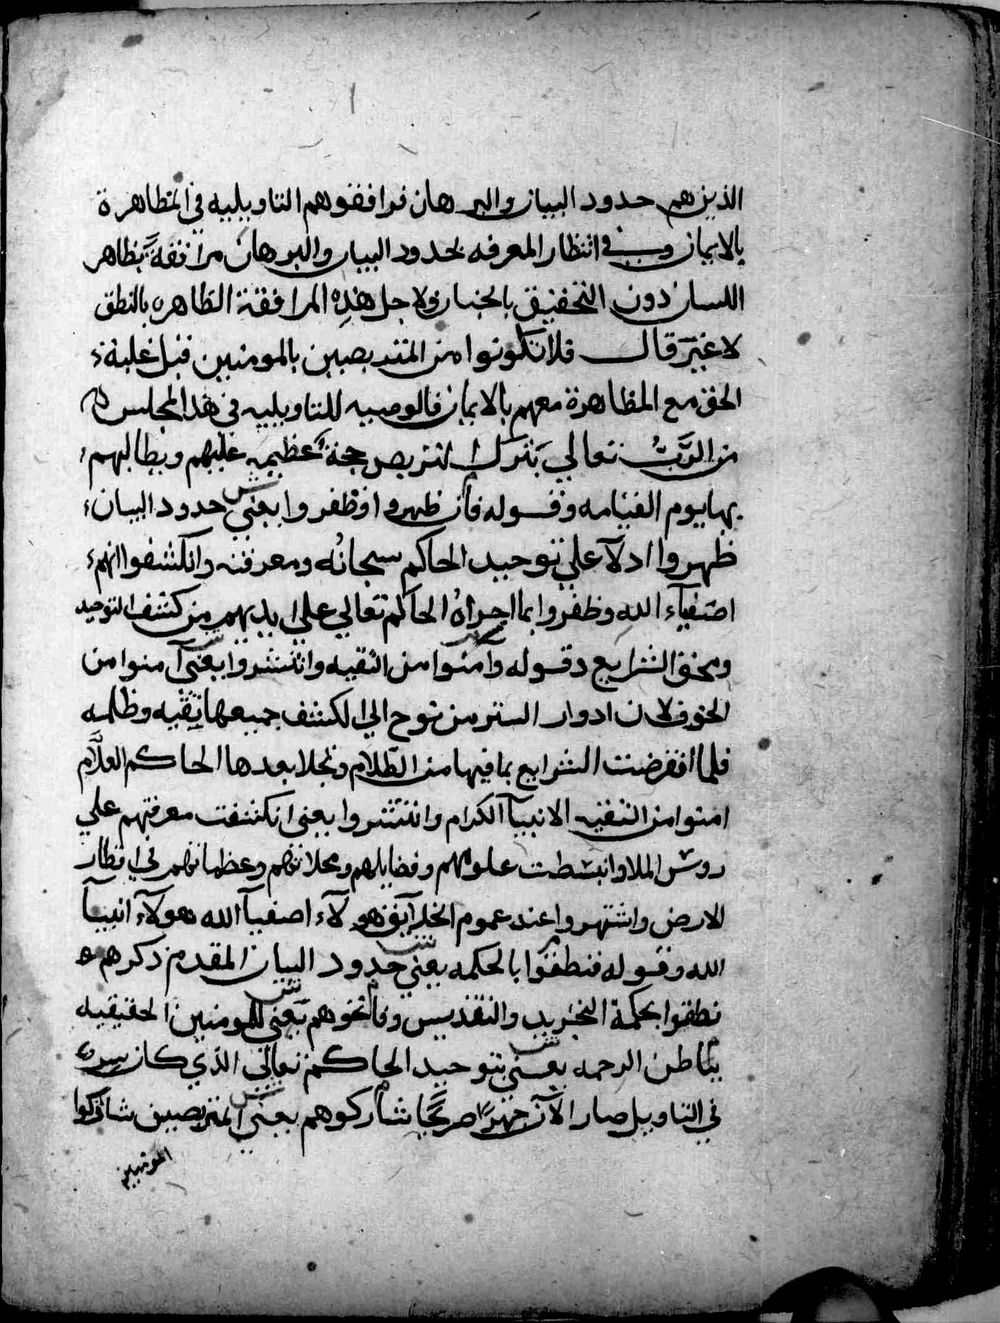 الذين هم حدود البيان والبرهان فرافقوهم التاويليه في المظاهرة
بالايمان وب في انتظار المعرفه لحدود البيان والبرهان مرافقة بظاهر
اللسان دون التحقيق بالجنان ولاجل هذه المرافقة الظاهره بالنطق
لا غير قال فلا تكونوا من المتربصين بالمومنين قبل غلبة
الحق مع المظاهرة معهم بالايمان فالوصيه للتاويليه في هذا المجلس
من الرب تعالي بترك التربص حجة عظيمه عليهم ويطالبهم
بها يوم القيامه وقوله فان ظهروا وظفروا يعني حدود البيان
ظهروا ادلآ علي توحيد الحاكم سبحانه ومعرفته وانكشفوا انهم
اصفيآء الله وظفروا بما اجراه الحاكم تعالي علي ايديهم من كشف التوحيد
ومحق الشرايع وقوله وامنوا من التقيه وانتشروا يعني آمنوا من
الخوف لان ادوار الستر من نوح الي الكشف جميعها تقيه وظلمه
فلما انقرضت الشرايع بما فيها من الظلام وتجلا بعدها الحاكم العلام
امنوا من التقيه الانبيآ الكرام وانتشروا يعني انكشفت معرفتهم علي
روس الملا وانبسطت علومهم وفضايلهم ومحلاتهم وعظماتهم في اقطار
الارض واشتهروا عند عموم الخلايق هولآء اصفيآ الله هولآء انبيآ
الله وقوله فنطقوا بالحكمه يعني حدود البيان المقدم ذكرهم
نطقوا بحكمة التجريد والتقديس وناغوهم يعني للمومنين الحقيقيه
بباطن الرحمه يعني بتوحيد الحاكم تعالي الذي كان سر
في التاويل صار الآن جهرًا صريحًا شاركوهم يعني المتربصين شاركوا
المومنين